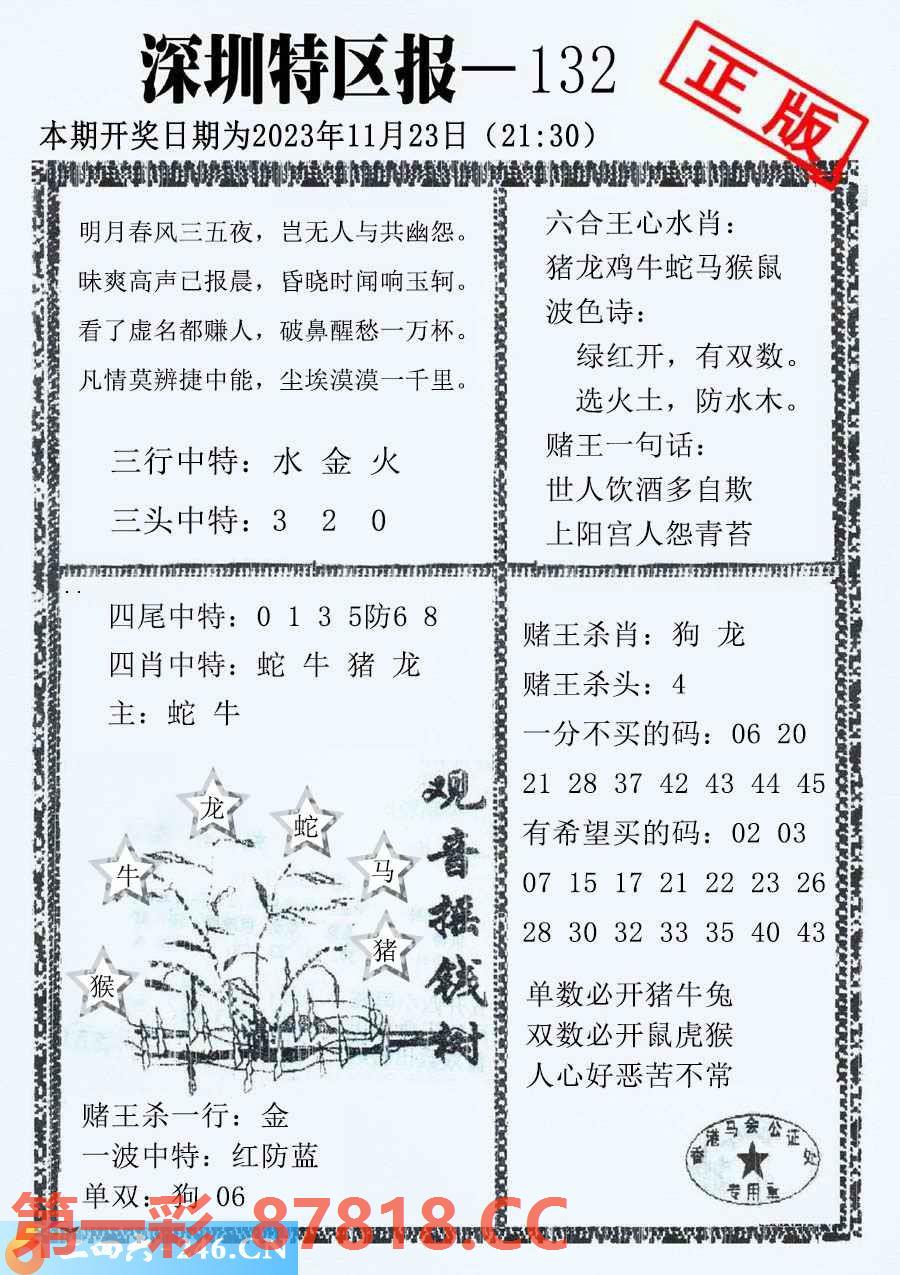 深圳特区报—132
正版
本期开奖日期为2023年11月23日（21:30）
明月春风三五夜，岂无人与共幽怨。
昧爽高声已报晨，昏晓时闻响玉轲。
看了虚名都赚人，破鼻醒愁一万杯。
凡情莫辨捷中能，尘埃漠漠一千里。
三行中特：水 金 火
三头中特：3 2 0
六合王心水肖：
猪龙鸡牛蛇马猴鼠
波色诗：
绿红开，有双数。
选火土，防水木。
赌王一句话：
世人饮酒多自欺
上阳宫人怨青苔
四尾中特：0 1 3 5防6 8
四肖中特：蛇 牛 猪 龙
主：蛇 牛
龙
蛇
牛
马
猪
猴
观音摇钱树
赌王杀一行：金
一波中特：红防蓝
单双：狗 06
赌王杀肖：狗 龙
赌王杀头：4
一分不买的码：06 20
21 28 37 42 43 44 45
有希望买的码：02 03
07 15 17 21 22 23 26
28 30 32 33 35 40 43
单数必开猪牛兔
双数必开鼠虎猴
人心好恶苦不常
香港马会公证处
专用章
第一彩 87818.CC
246.CN